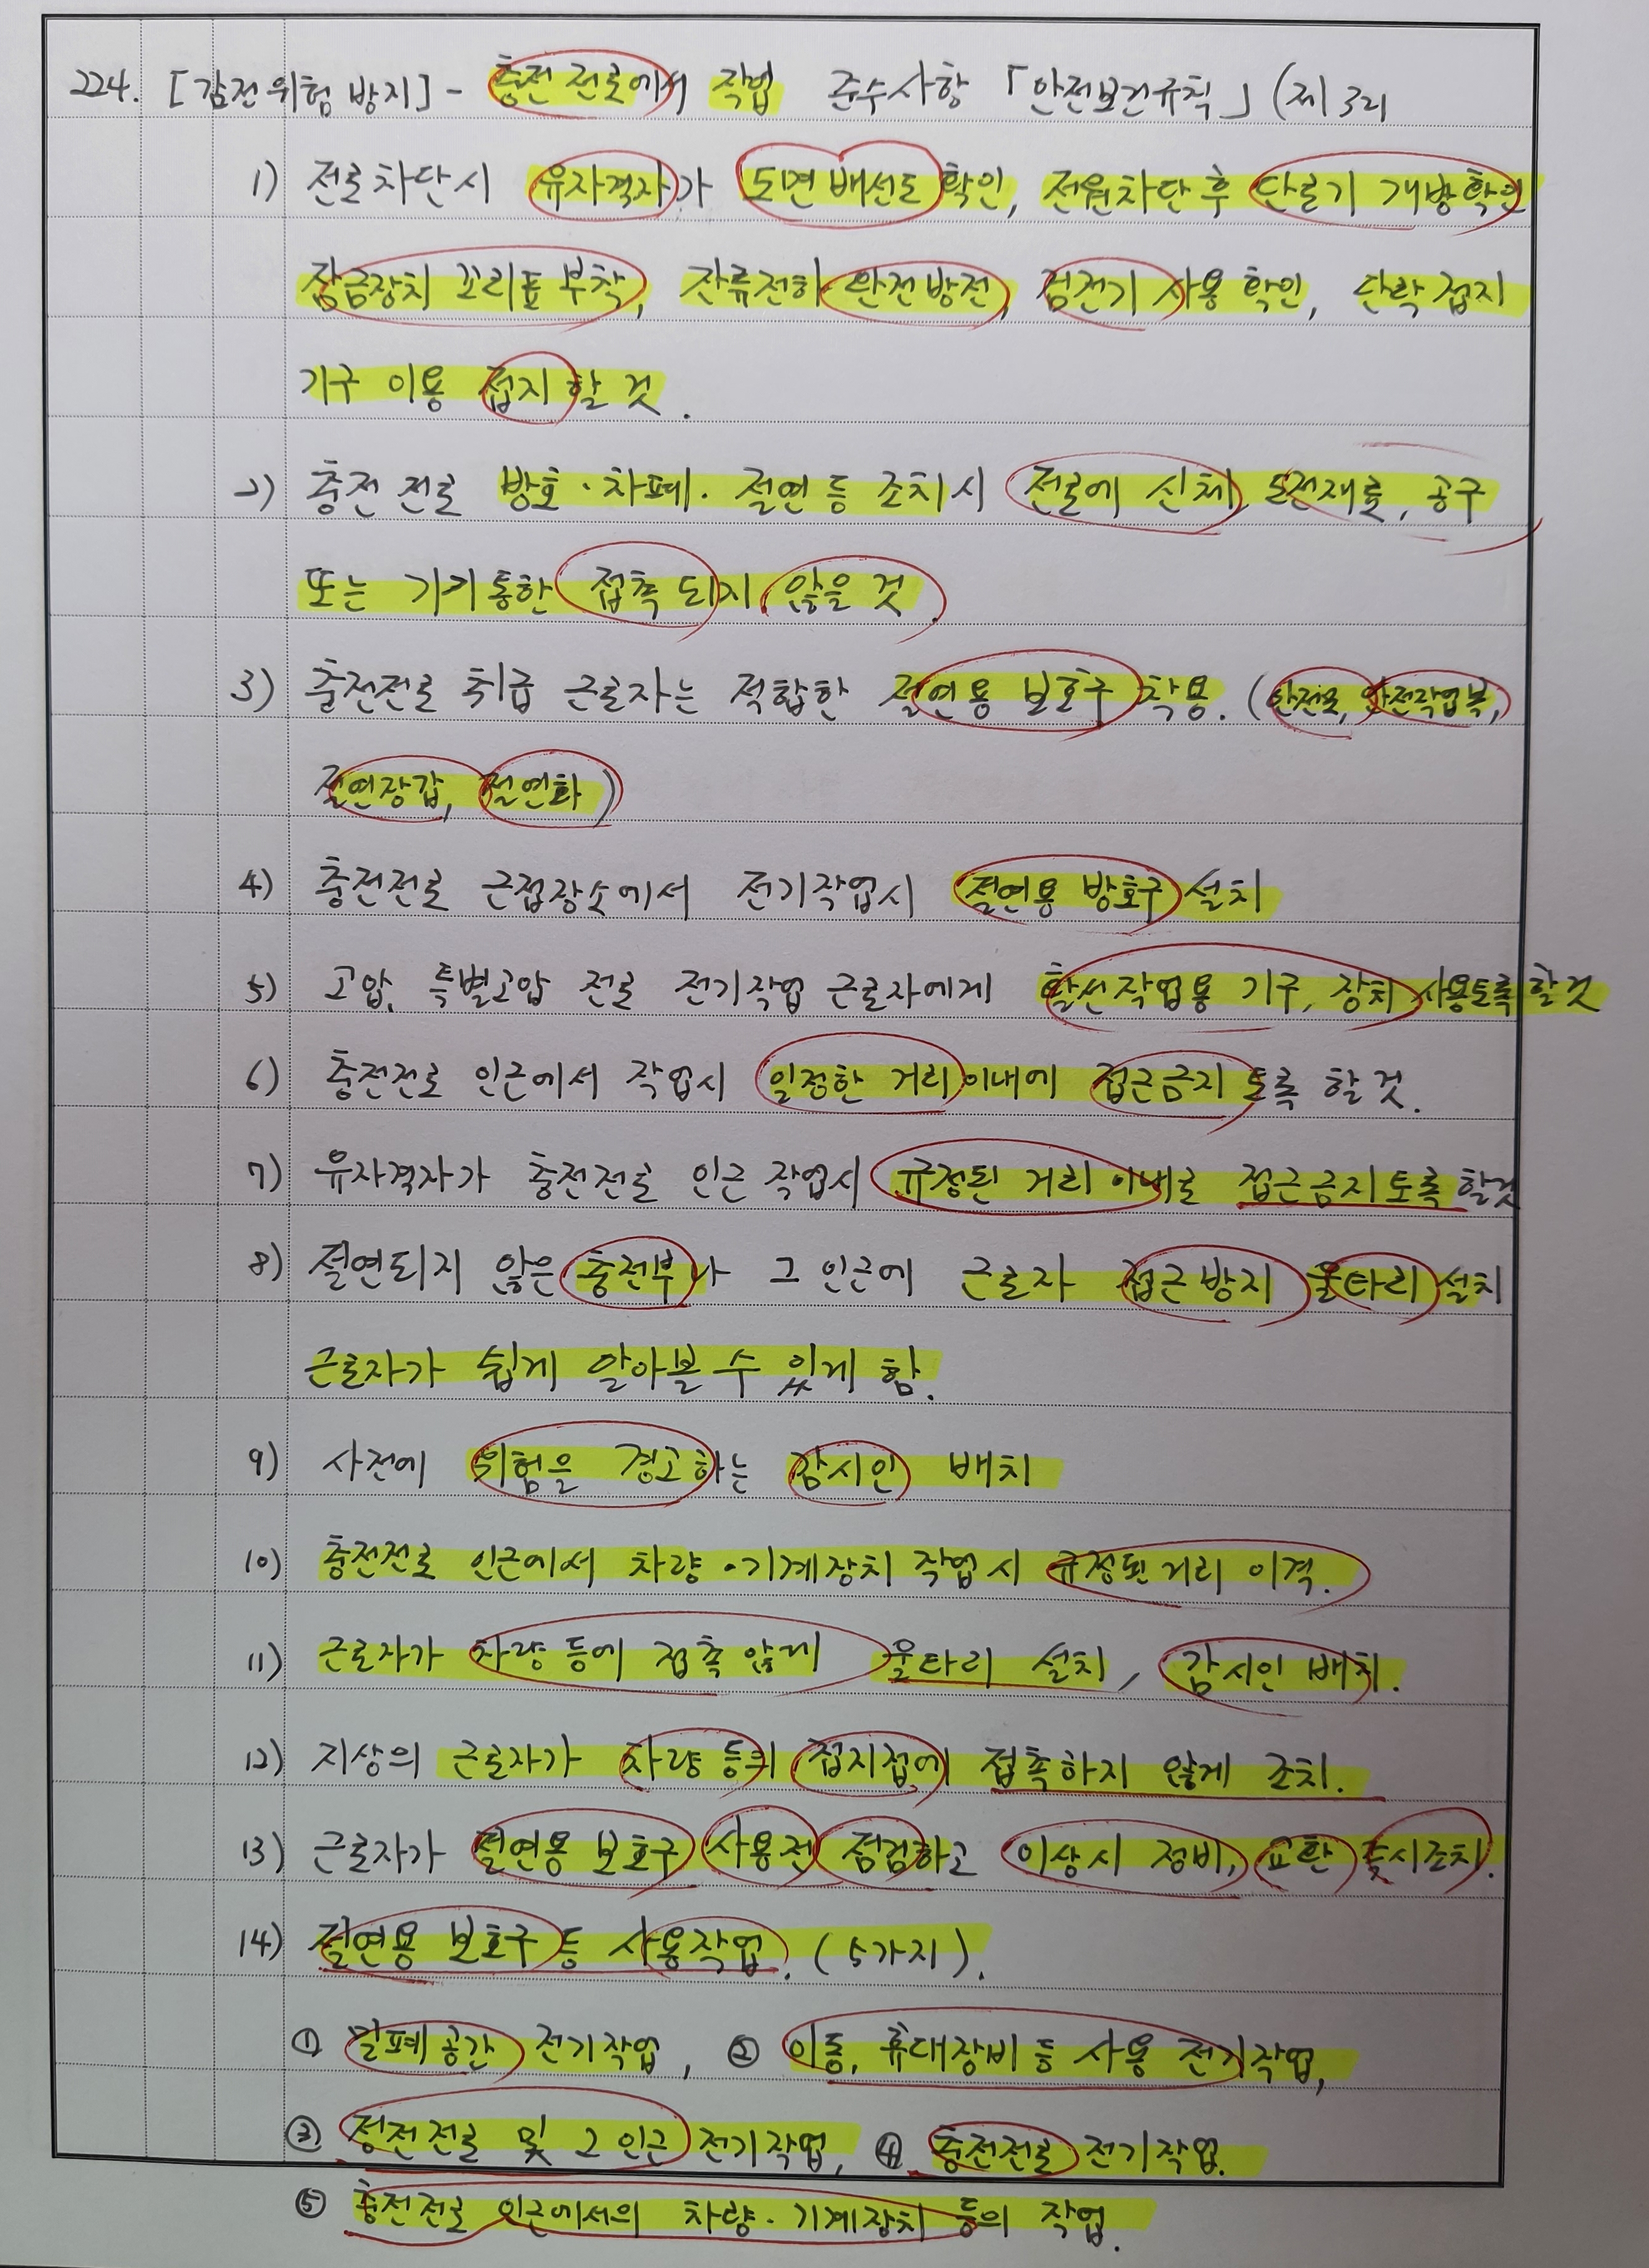 224. [감전위험 방지] - 충전전로에서 작업 준수사항 「안전보건규칙」(제321
1) 전로차단시 유자격자가 도면 배선도 확인, 전원차단 후 단로기 개방확인
잠금장치 꼬리표 부착, 잔류전하 완전방전, 검전기 사용 확인, 단락 접지
기구 이용 접지할 것.
2) 충전 전로 방호·차폐·절연 등 조치시 전로에 신체, 도전재료, 공구
또는 기기통한 접촉 되지 않을 것.
3) 충전전로 취급 근로자는 적합한 절연용 보호구 착용. (안전모, 안전작업복,
절연장갑, 절연화)
4) 충전전로 근접장소에서 전기작업시 절연용 방호구 설치
5) 고압, 특별고압 전로 전기작업 근로자에게 활선작업용 기구, 장치 사용토록 할것
6) 충전전로 인근에서 작업시 일정한 거리 이내에 접근금지 토록 할 것.
7) 유자격자가 충전전로 인근 작업시 규정된 거리 이내로 접근금지토록 할것
8) 절연되지 않은 충전부나 그 인근에 근로자 접근방지 울타리 설치
근로자가 쉽게 알아볼 수 있게 함.
9) 사전에 위험을 경고하는 감시인 배치
10) 충전전로 인근에서 차량·기계장치 작업시 규정된 거리 이격.
11) 근로자가 차량 등에 접촉 않게 울타리 설치, 감시인 배치.
12) 지상의 근로자가 차량 등의 접지점에 접촉하지 않게 조치.
13) 근로자가 절연용 보호구 사용전 점검하고 이상시 정비, 교환 즉시조치.
14) 절연용 보호구 등 사용작업. (5가지).
① 밀폐공간 전기작업, ② 이동, 휴대장비 등 사용 전기작업,
③ 정전전로 및 그 인근 전기작업, ④ 충전전로 전기작업.
⑤ 충전전로 인근에서의 차량·기계장치 등의 작업.